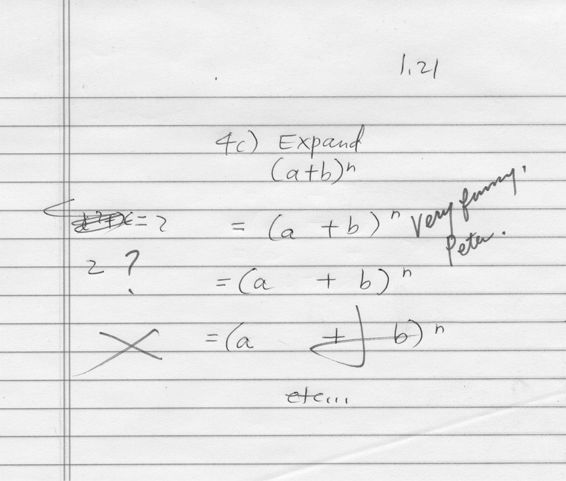 1,21
4c) Expand
(a+b)ⁿ
= 2 = (a +b)ⁿ Very funny,
Peter.
2 ? = (a + b)ⁿ
= (a + b)ⁿ
etc...